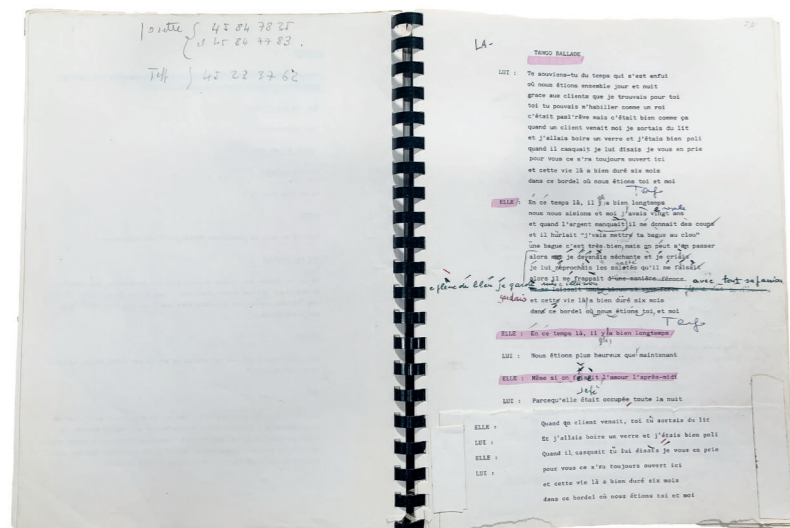 45 84 78 25
45 22 37 62
LA-
TANGO BALLADE
LUI : Te souviens-tu du temps qui s'est enfui
où nous étions ensemble jour et nuit
grace aux clients que je trouvais pour toi
toi tu pouvais m'habiller comme un roi
c'était pasl'rêve mais c'était bien comme ça
quand un client venait moi je sortais du lit
et j'allais boire un verre et j'étais bien poli
quand il casquait je lui disais je vous en prie
pour vous ce s'ra toujours ouvert ici
et cette vie là a bien duré six mois
dans ce bordel où nous étions toi et moi
Tango
ELLE : En ce temps là, il y a bien longtemps
nous nous aimions et moi j'avais vingt ans
et quand l'argent manquait il me donnait des coups
et il hurlait "j'vais mettre ta bague au clou"
une bague c'est très bien, mais on peut s'en passer
alors je devenais méchante et je criais
je lui reprochais les saletés qu'il me faisait
alors il me frappait d'une manière féroce
pleine de bleu je garde
avec tout sa passion
et cette vie là a bien duré six mois
dans ce bordel où nous étions toi, et moi
Tango
ELLE : En ce temps là, il y a bien longtemps
LUI : Nous étions plus heureux que maintenant
ELLE : Même si on faisait l'amour l'après-midi
LUI : Parcequ'elle était occupée toute la nuit
ELLE : Quand un client venait, toi tu sortais du lit
LUI : Et j'allais boire un verre et j'étais bien poli
ELLE : Quand il casquait tu lui disais je vous en prie
LUI : pour vous ce s'ra toujours ouvert ici
et cette vie là a bien duré six mois
dans ce bordel où nous étions toi et moi